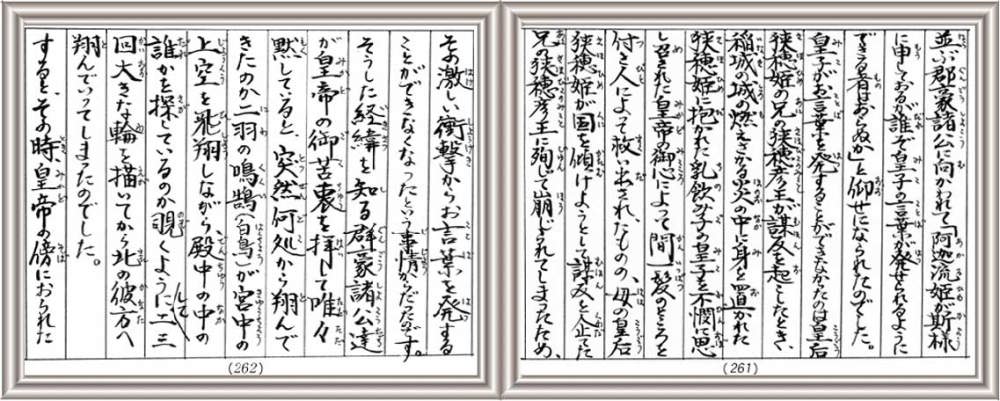 並ぶ郡豪諸公に向かわれて「阿迦流姫が斯様
に申しておるが誰ぞ皇子の言葉が発せられるように
できる者はおらぬか」と仰せになられたのでした。
皇子がお言葉を発することができなかったのは皇后
狭穂姫の兄の狭穂彦王が謀反を起したとき、
稲城の城の燃えさかる火の中に身を置かれた
狭穂姫に抱かれた乳飲み子の皇子を不憫に思
し召された皇帝の御心によって間一髪のところを
付き人によって救い出されたものの、母の皇后
狭穂姫が国を傾けようとして謀反を企てた
兄の狭穂彦王に殉じて崩じられてしまったため、
(261)
その激しい衝撃からお言葉を発する
ことができなくなったという事情からだったのです。
そうした経緯を知る群豪諸公達
が皇帝の御苦衷を拝して唯々
黙していると、突然何処から翔んで
きたのか二羽の鳴鵠(白鳥)が宮中の
上空を飛翔しながら殿中の中の
誰かを探しているのか覗くようにして二三
回大きな輪を描いてから北の彼方へ
翔んでいってしまったのでした。
すると、その時、皇帝の傍におられた
(262)